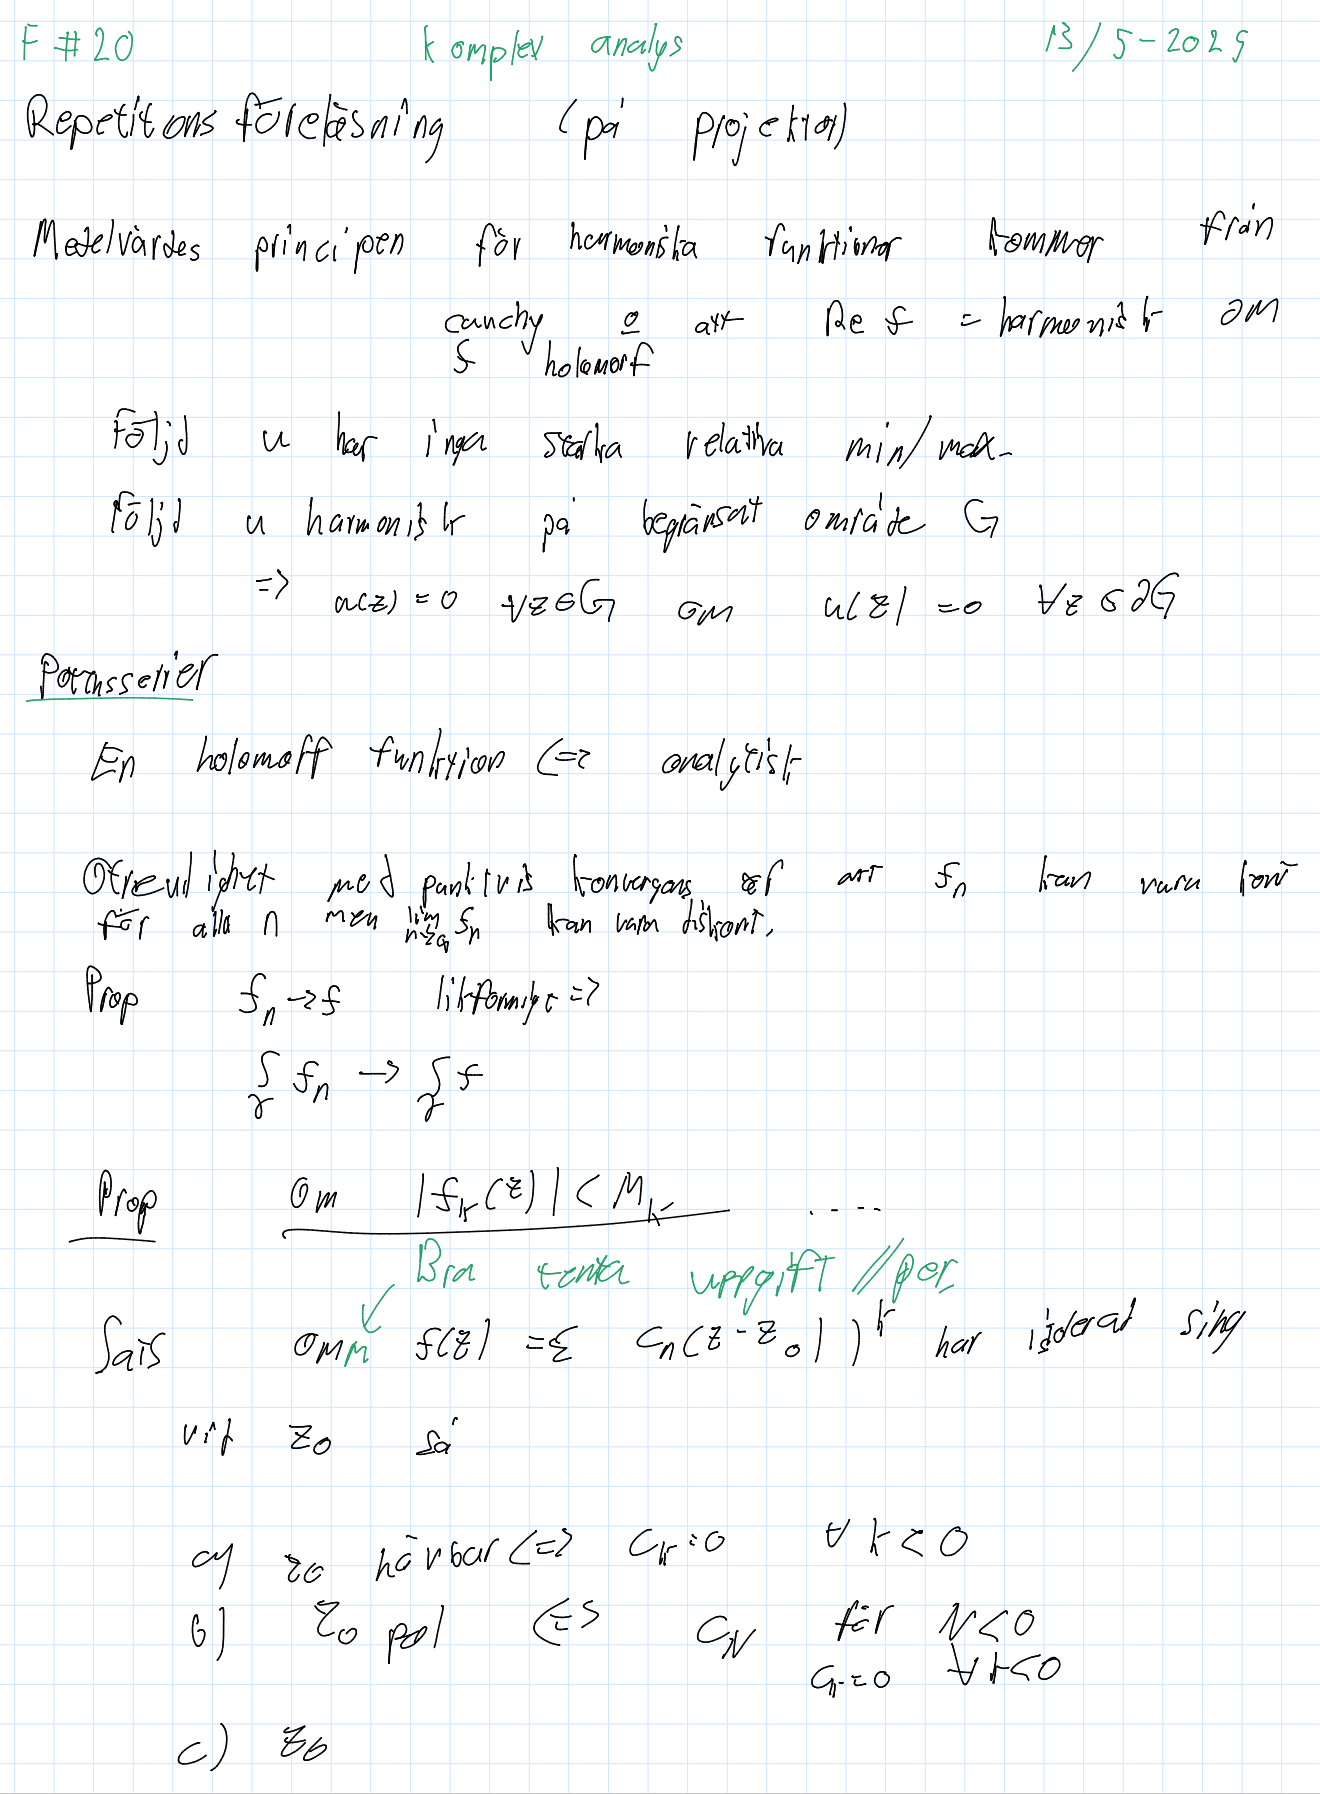 F # 20 Komplex analys 13/5-2025
Repetitions föreläsning (på projektor)
Medelvärdes principen för harmoniska funktioner kommer från
cauchy o att Re f = harmonisk om
f holomorf
Följd u har inga starka relativa min/max.
Följd u harmonisk på begränsat område G
=> u(z) = 0 ∀z∈G om u(z) = 0 ∀z∈∂G
Potensserier
En holomorf funktion <=> analytisk
Otrevlighet med punktvis konvergens att f_n kan vara kont
för alla n men lim n→∞ f_n kan vara diskont.
Prop f_n → f likformigt =>
∫_γ f_n → ∫_γ f
Prop Om |f_k(z)| < M_k ....
Bra tenta uppgift //per.
Sats omm f(z) = Σ c_n(z-z_0))^k har isolerad sing
vid z_0 så
a) z_0 hävbar <=> c_k=0 ∀ k<0
b) z_0 pol <=> c_N för N<0
c_k=0 ∀k<0
c) z_0